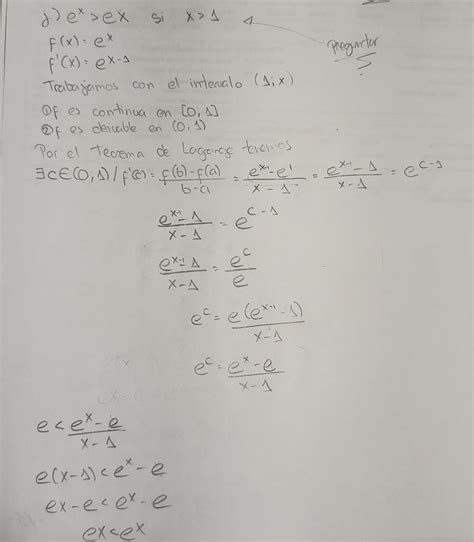 j) e^x > ex si x > 1
Preguntar
?
f(x) = e^x
f'(x) = e^{x-1}
Trabajamos con el intervalo (1; x)
① f es continua en [0, 1]
② f es derivable en (0, 1)
Por el Teorema de Lagrange tenemos
∃ c ∈ (0, 1) / f'(c) = \frac{f(b) - f(a)}{b - a} = \frac{e^{x-1} - e^1}{x - 1} = \frac{e^{x-1} - 1}{x - 1} = e^{c-1}
\frac{e^{x-1} - 1}{x - 1} = e^{c-1}
\frac{e^{x-1} - 1}{x - 1} = \frac{e^c}{e}
e^c = \frac{e(e^{x-1} - 1)}{x - 1}
e^c = \frac{e^x - e}{x - 1}
e < \frac{e^x - e}{x - 1}
e(x - 1) < e^x - e
ex - e < e^x - e
ex < e^x